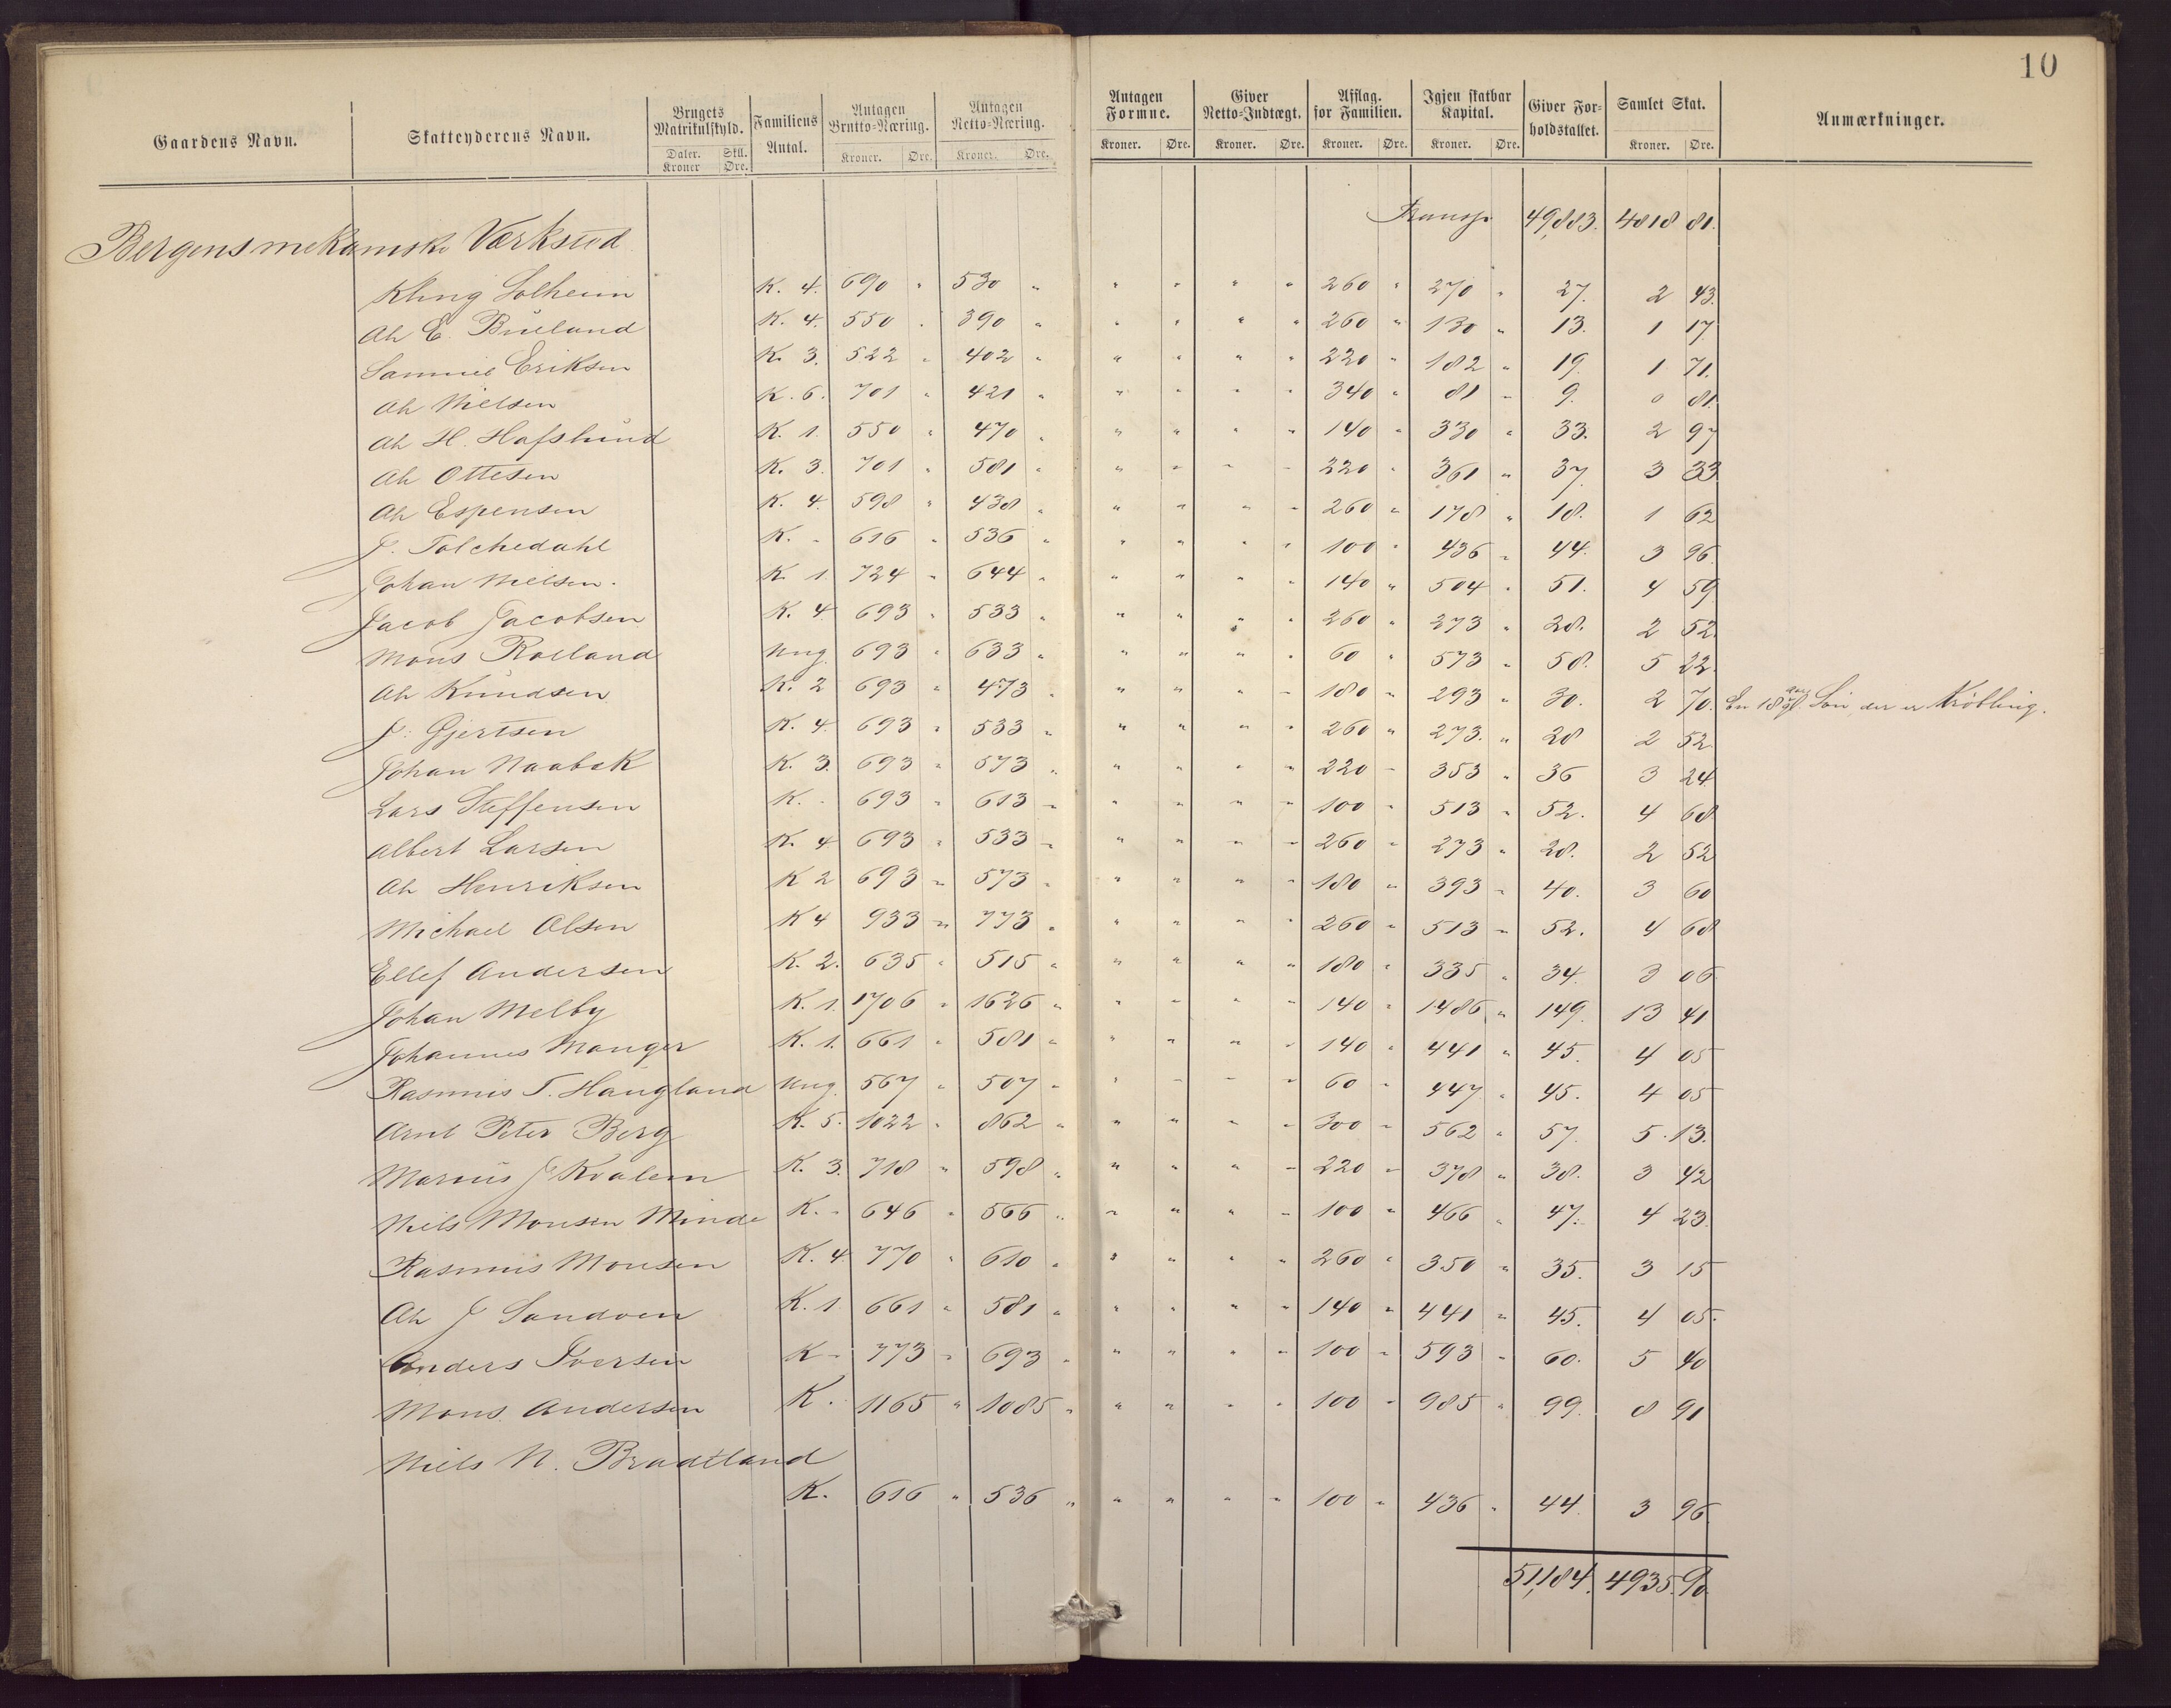 10
Gaardens Navn. | Skatteyderens Navn. | Brugets Matrikulskyld. Daler. Skll. Kroner Øre. | Familiens Antal. | Antagen Brutto=Næring. Kroner. Øre. | Antagen Netto=Næring. Kroner. Øre. | Antagen Formue. Kroner. Øre. | Giver Netto=Indtægt. Kroner. Øre. | Afslag. for Familien. Kroner. Øre. | Igjen skatbar Kapital. Kroner. Øre. | Giver Forholdstallet. | Samlet Skat. Kroner. Øre. | Anmærkninger.
Transp. 49,883. 4818 81.
Bergens mekaniske Værksted
Kling Solheim K. 4. 690 " 530 " " " " " 260 " 270 " 27. 2 43.
Ah E. Bueland K. 4. 550 " 390 " " " " " 260 " 130 " 13. 1 17
Samuel Eriksen K. 3. 522 " 402 " " " " " 220 " 182 " 19. 1 71.
Ah Nielsen K. 6. 701 " 421 " " " " " 340 " 81 " 9. 0 81.
Ah H. Hafslund K. 1. 550 " 470 " " " " " 140 " 330 " 33. 2 97
Ah Ottesen K. 3. 701 " 581 " " " " " 220 " 361 " 37. 3 33
Ah Espensen K. 4. 598 " 438 " " " " " 260 " 178 " 18. 1 62
J. Tolchedahl K. - 616 " 536 " " " " " 100 " 436 " 44. 3 96.
Johan Nielsen. K. 1. 724 " 644 " " " " " 140 " 504 " 51. 4 59
Jacob Jacobsen K. 4 693 " 533 " " " " " 260 " 273 " 28. 2 52.
Mons Rolland Ung. 693 " 633 " " " " " 60 " 573 " 58. 5 22.
Ah Knudsen K. 2 693 " 473 " " " " " 180 " 293 " 30. 2 70. En 18 aar gl Sön der er Kröbling.
J. Gjertsen K. 4. 693 " 533 " " " " " 260 " 273. " 28 2 52.
Johan Naabek K. 3. 693 " 573 " " " " " 220 " 353 " 36 3 24.
Lars Steffensen K. - 693 " 613 " " " " " 100 " 513 " 52. 4 68
Albert Larsen K. 4 693 " 533 " " " " " 260 " 273 " 28. 2 52
Ah Henriksen K 2 693 " 573 " " " " " 180 " 393 " 40. 3 60
Michael Olsen K 4 933 " 773 " " " " " 260 " 513 " 52. 4 68
Ellef Andersen K. 2. 635 " 515 " " " " " 180 " 335 " 34. 3 06.
Johan Melby K. 1. 1706 " 1626 " " " " " 140 " 1486 " 149. 13 41
Johannes Manger K. 1. 661 " 581 " " " " " 140 " 441 " 45. 4 05
Rasmus T. Haugland Ung. 567 " 507 " " " " " 60 " 447 " 45. 4 05
Arnt Peter Berg K. 5. 1022 " 862 " " " " " 300 " 562 " 57. 5. 13.
Marius J Kvalem K. 3. 718 " 598 " " " " " 220 " 378 " 38. 3 42
Niels Monsen Minde K. - 646 " 566 " " " " " 100 " 466 " 47. 4 23.
Rasmus Monsen K. 4. 770 " 610 " " " " " 260 " 350 " 35. 3 15
Ah J Sandven K. 1. 661 " 581 " " " " " 140 " 441 " 45. 4 05.
Anders Iversen K - 773 " 693 " " " " " 100 " 593 " 60. 5 40
Mons Andersen K. 1165 " 1085 " " " " " 100 " 985 " 99. 8 91
Niels N. Bradtland
K. 616 " 536 " " " " " 100 " 436 " 44. 3 96.
51,184. 4935. 90.